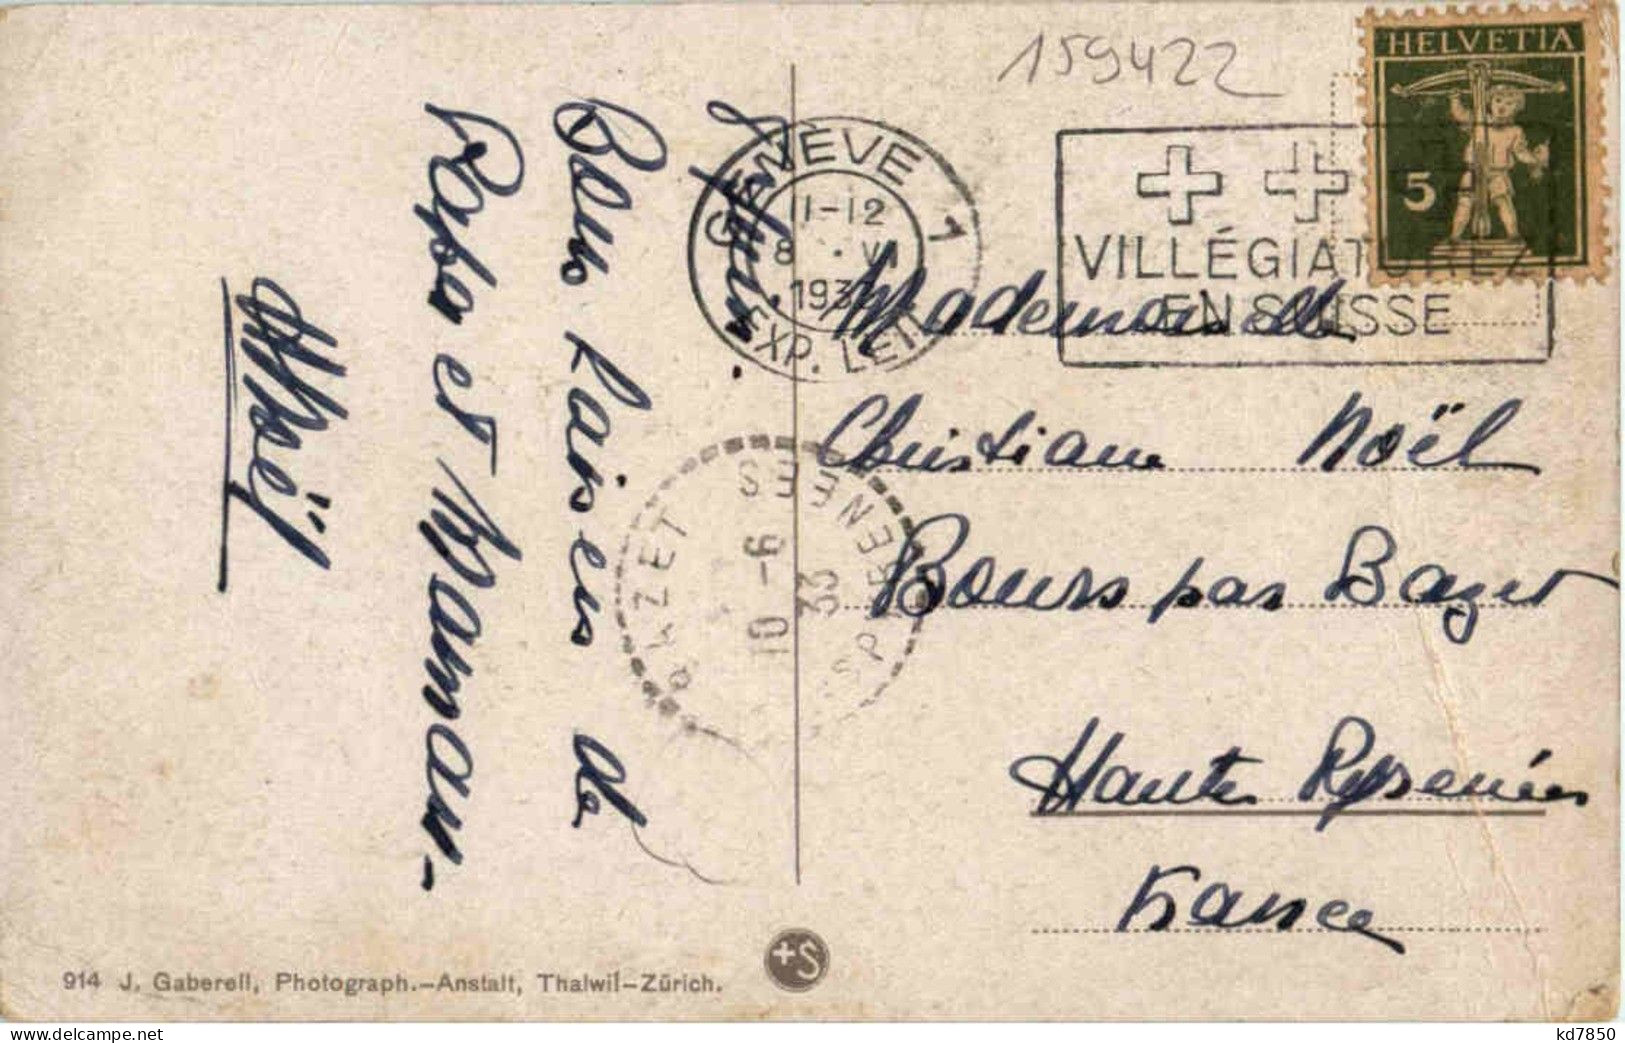 159422
HELVETIA
5
GENÈVE 1
11-12
8 . VI
1933
EXP. LETT
VILLÉGIATUREZ
EN SUISSE
8 juin.
Bons baisers de
Papa et Maman-
Noël
Mademoiselle
Christiane Noël
Bours par Bazet
Hautes Pyrénées
France
BAZET
10 -6
33
HTES PYRENEES
914 J. Gaberell, Photograph.-Anstalt, Thalwil-Zürich.
+S
kd7850